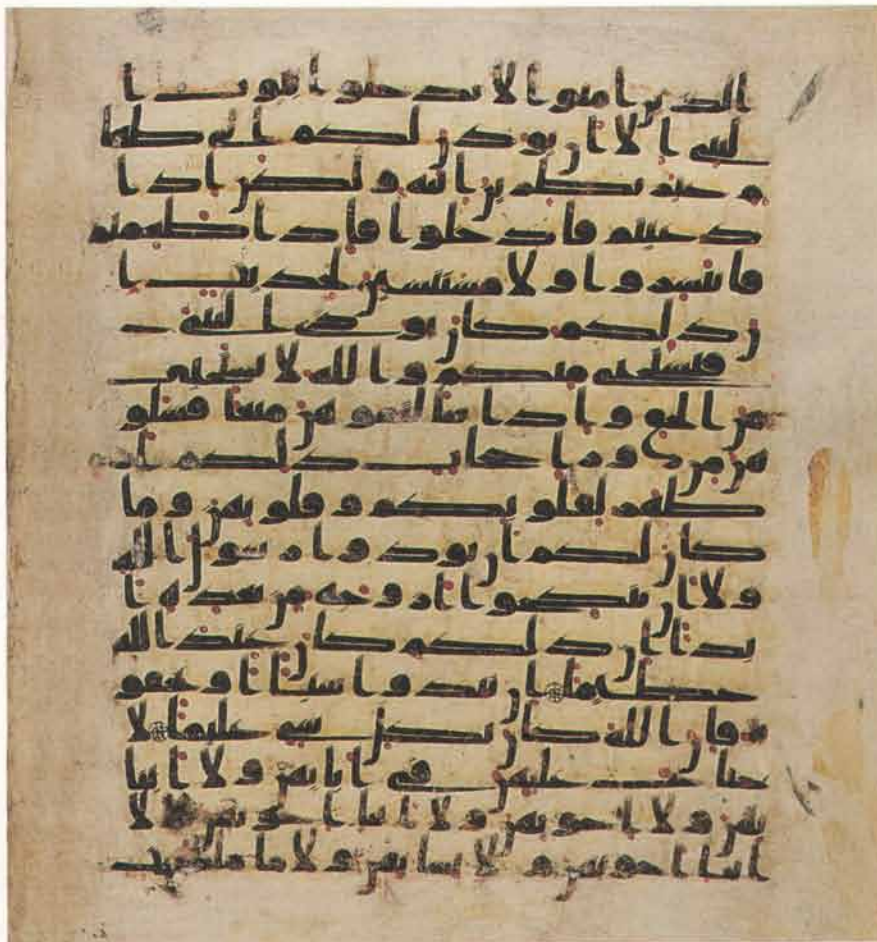 الذين امنوا لا تدخلوا بيوت ا
لنبي الا ان يوذن لكم الى طعا
م غير نظرين انيه ولكن اذا
دعيتم فادخلوا فاذا طعمتم
فانتشروا ولا مستنسين لحديث ا
ن ذلكم كان يوذي النبي
فيستحي منكم والله لا يستحي
من الحق واذا سالتموهن متعا فسلو
هن من ورا حجاب ذلكم ا
طهر لقلوبكم وقلوبهن وما
كان لكم ان توذوا رسول الله
ولا ان تنكحوا ازوجه من بعده ا
بدا ان ذلكم كان عند الله
عظيما ان تبدوا شيا او تخفو
ه فان الله كان بكل شي عليما لا
جناح عليهن في ابايهن ولا ابنا
يهن ولا اخونهن ولا ابنا اخونهن ولا
ابنا اخوتهن ولا نسايهن ولا ما ملكت